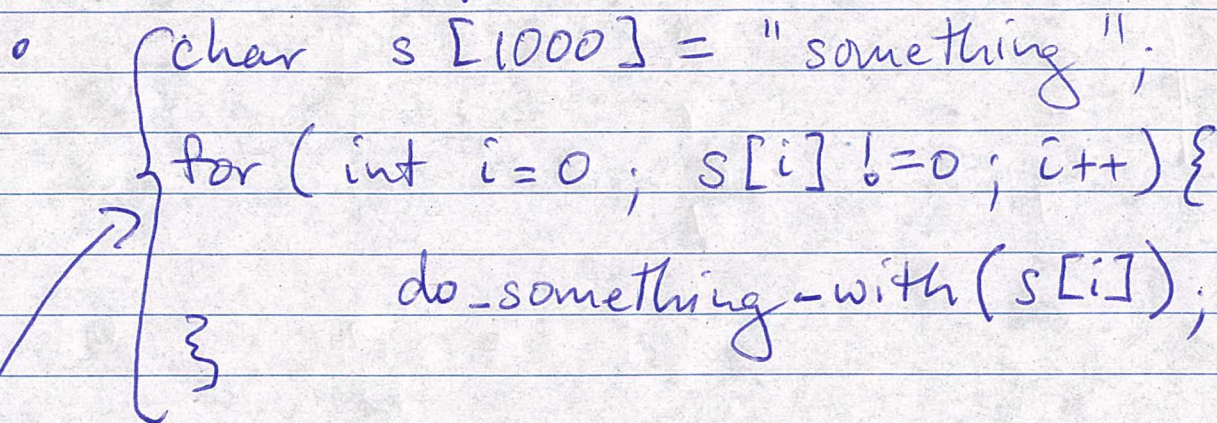 • char s [1000] = "something";
for ( int i=0 ; s[i] !=0 ; i++) {
do_something_with ( s[i]);
}